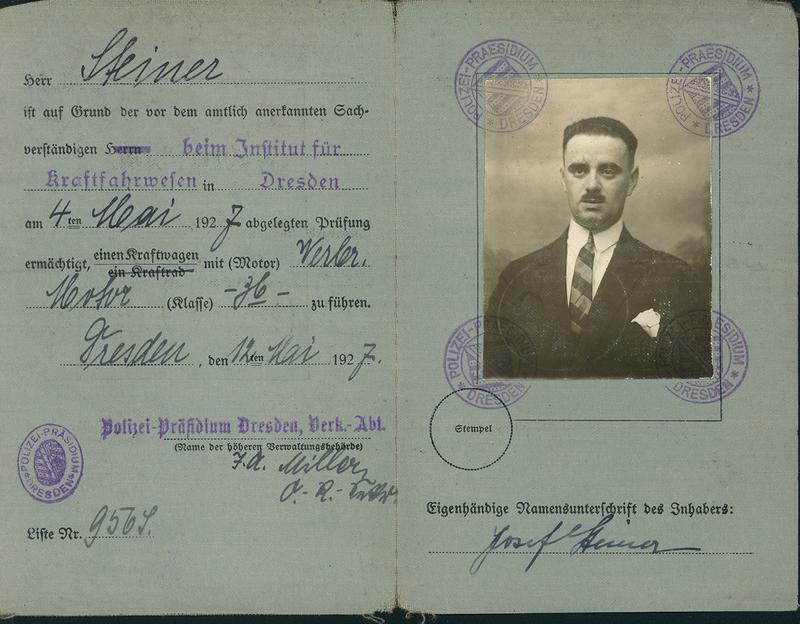 Herr Steiner
ist auf Grund der vor dem amtlich anerkannten Sach-
verständigen Herrn beim Institut für
Kraftfahrwesen in Dresden
am 4ten Mai 1927 abgelegten Prüfung
ermächtigt, einen Kraftwagen
ein Kraftrad mit (Motor) Verbr.
Motor (Klasse) -3b- zu führen.
Dresden, den 12ten Mai 1927.
Polizei-Präsidium Dresden, Verk.-Abt.
(Name der höheren Verwaltungsbehörde)
Miller
POLIZEI-PRÄSIDIUM
DRESDEN
Liste Nr.
POLIZEI-PRAESIDIUM
* DRESDEN *
POLIZEI-PRAESIDIUM
* DRESDEN *
POLIZEI-PRAESIDIUM
* DRESDEN *
POLIZEI-PRAESIDIUM
* DRESDEN *
Stempel
Eigenhändige Namensunterschrift des Inhabers:
Josef Steiner